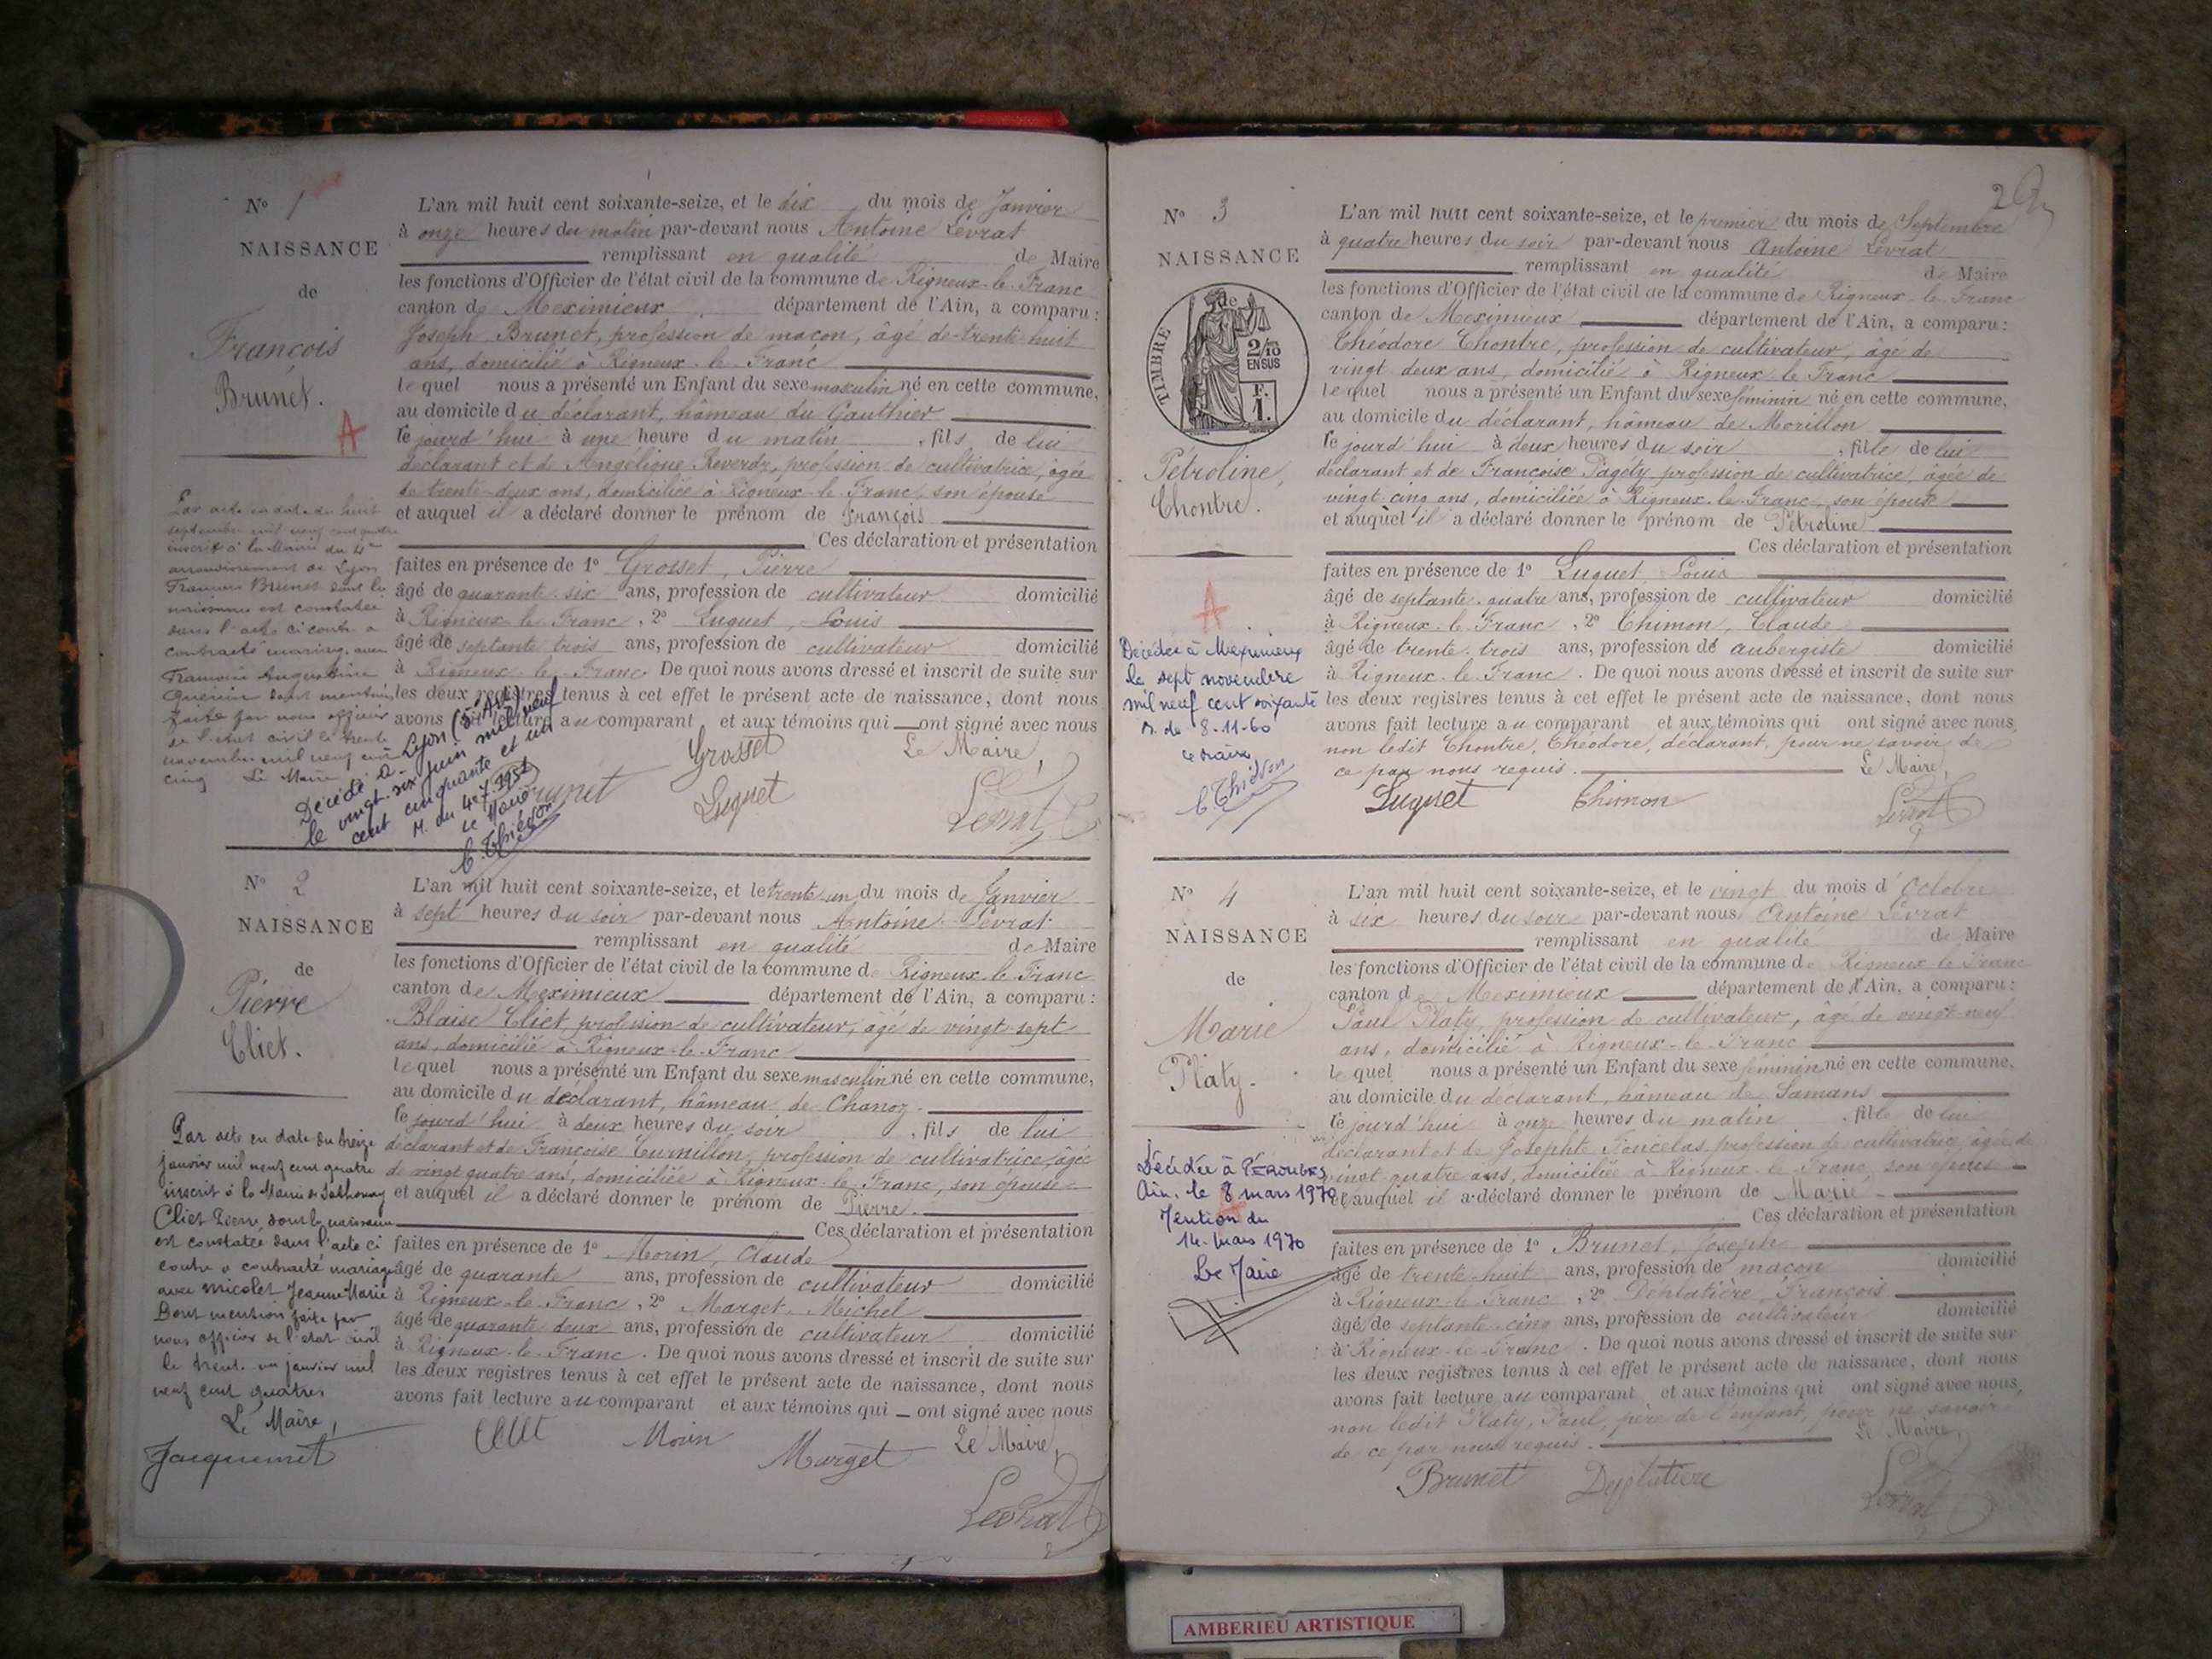 N° 1
NAISSANCE
de
François
Brunet.
A
L'an mil huit cent soixante-seize, et le dix du mois de Janvier
à onze heures du matin par-devant nous Antoine Levrat
remplissant en qualité de Maire
les fonctions d'Officier de l'état civil de la commune de Rigneux-le-Franc
canton de Meximieux département de l'Ain, a comparu :
Joseph Brunet, profession de maçon, âgé de trente-huit
ans, domicilié à Rigneux-le-Franc
lequel nous a présenté un Enfant du sexe masculin né en cette commune,
au domicile du déclarant, hâmeau du Gauthier
le jourd'hui à une heure du matin, fils de lui
déclarant et de Angélique Reverdy, profession de cultivatrice, âgée
de trente-deux ans, domiciliée à Rigneux-le-Franc, son épouse
et auquel il a déclaré donner le prénom de François
Ces déclaration et présentation
faites en présence de 1° Grosset, Pierre
âgé de quarante-six ans, profession de cultivateur domicilié
à Rigneux-le-Franc, 2° Luquet, Louis
âgé de septante trois ans, profession de cultivateur domicilié
à Rigneux-le-Franc. De quoi nous avons dressé et inscrit de suite sur
les deux registres tenus à cet effet le présent acte de naissance, dont nous
avons fait lecture au comparant et aux témoins qui ont signé avec nous
Le Maire,
Brunet Grosset Luquet Levrat
Par acte en date du huit
septembre mil neuf cent quatre
inscrit à la Mairie du 4e
arrondissement de Lyon
François Brunet dont la
naissance est constatée
dans l'acte ci contre a
contracté mariage avec
Françoise Augustine
Guerin dont mention
faite par nous officier
de l'état civil le trente
novembre mil neuf cent
cinq Le Maire
Décédé à Lyon (5e Ar.)
le vingt-six juin mil neuf
cent cinquante et un
M. du 4.7.1951
Le Maire
N° 2
NAISSANCE
de
Pierre
Cliet.
L'an mil huit cent soixante-seize, et le trente-un du mois de Janvier
à sept heures du soir par-devant nous Antoine Levrat
remplissant en qualité de Maire
les fonctions d'Officier de l'état civil de la commune de Rigneux-le-Franc
canton de Meximieux département de l'Ain, a comparu :
Blaise Cliet, profession de cultivateur, âgé de vingt-sept
ans, domicilié à Rigneux-le-Franc
lequel nous a présenté un Enfant du sexe masculin né en cette commune,
au domicile du déclarant, hâmeau de Chanoz
le jourd'hui à deux heures du soir, fils de lui
déclarant et de Françoise Curnillon, profession de cultivatrice, âgée
de vingt quatre ans, domiciliée à Rigneux-le-Franc, son épouse
et auquel il a déclaré donner le prénom de Pierre.
Ces déclaration et présentation
faites en présence de 1° Morin, Claude
âgé de quarante ans, profession de cultivateur domicilié
à Rigneux-le-Franc, 2° Marget, Michel
âgé de quarante deux ans, profession de cultivateur domicilié
à Rigneux-le-Franc. De quoi nous avons dressé et inscrit de suite sur
les deux registres tenus à cet effet le présent acte de naissance, dont nous
avons fait lecture au comparant et aux témoins qui ont signé avec nous
Cliet Morin Marget Le Maire,
Levrat
Par acte en date du treize
janvier mil neuf cent quatre
inscrit à la Mairie de
Cliet Pierre, dont la naissance
est constatée dans l'acte ci
contre a contracté mariage
avec Nicolet Jeanne Marie
Dont mention faite par
nous officier de l'état civil
le trente-un janvier mil
neuf cent quatre
Le Maire,
Jacquemet
2
N° 3
NAISSANCE
de
TIMBRE
2/10
EN SUS
F.
1.
Pétroline,
Chontre.
A
L'an mil huit cent soixante-seize, et le premier du mois de Septembre
à quatre heures du soir par-devant nous Antoine Levrat
remplissant en qualité de Maire
les fonctions d'Officier de l'état civil de la commune de Rigneux-le-Franc
canton de Meximieux département de l'Ain, a comparu :
Théodore Chontre, profession de cultivateur, âgé de
vingt deux ans, domicilié à Rigneux-le-Franc
lequel nous a présenté un Enfant du sexe féminin né en cette commune,
au domicile du déclarant, hâmeau de Morillon
le jourd'hui à deux heures du soir, fille de lui
déclarant et de Françoise Pagéty, profession de cultivatrice, âgée de
vingt cinq ans, domiciliée à Rigneux-le-Franc, son épouse
et auquel il a déclaré donner le prénom de Pétroline
Ces déclaration et présentation
faites en présence de 1° Luquet Louis
âgé de septante-quatre ans, profession de cultivateur domicilié
à Rigneux-le-Franc, 2° Thimon, Claude
âgé de trente-trois ans, profession de aubergiste domicilié
à Rigneux-le-Franc. De quoi nous avons dressé et inscrit de suite sur
les deux registres tenus à cet effet le présent acte de naissance, dont nous
avons fait lecture au comparant et aux témoins qui ont signé avec nous,
non ledit Chontre, Théodore, déclarant, pour ne savoir de
ce par nous requis. Le Maire,
Luquet Thimon Levrat
Décédée à Meximieux
le sept novembre
mil neuf cent soixante
M. du 8-11-60
Le Maire
N° 4
NAISSANCE
de
Marie
Platy.
L'an mil huit cent soixante-seize, et le vingt du mois d'Octobre
à six heures du soir par-devant nous Antoine Levrat
remplissant en qualité de Maire
les fonctions d'Officier de l'état civil de la commune de Rigneux-le-Franc
canton de Meximieux département de l'Ain, a comparu :
Paul Platy, profession de cultivateur, âgé de vingt-neuf
ans, domicilié à Rigneux-le-Franc
lequel nous a présenté un Enfant du sexe féminin né en cette commune,
au domicile du déclarant, hâmeau de Samans
le jourd'hui à onze heures du matin, fille de lui
déclarant et de Josephte Foncelas, profession de cultivatrice, âgée de
vingt quatre ans, domiciliée à Rigneux-le-Franc, son épouse
et auquel il a déclaré donner le prénom de Marie
Ces déclaration et présentation
faites en présence de 1° Brunet, Joseph
âgé de trente huit ans, profession de maçon domicilié
à Rigneux-le-Franc, 2° Déplatière, François
âgé de septante-cinq ans, profession de cultivateur domicilié
à Rigneux-le-Franc. De quoi nous avons dressé et inscrit de suite sur
les deux registres tenus à cet effet le présent acte de naissance, dont nous
avons fait lecture au comparant et aux témoins qui ont signé avec nous,
non ledit Platy, Paul, père de l'enfant, pour ne savoir
de ce par nous requis. Le Maire,
Brunet Desplatiere Levrat
Décédée à PÉROUGES
Ain, le 8 mars 1970
Mention du
14 mars 1970
Le Maire
AMBERIEU ARTISTIQUE